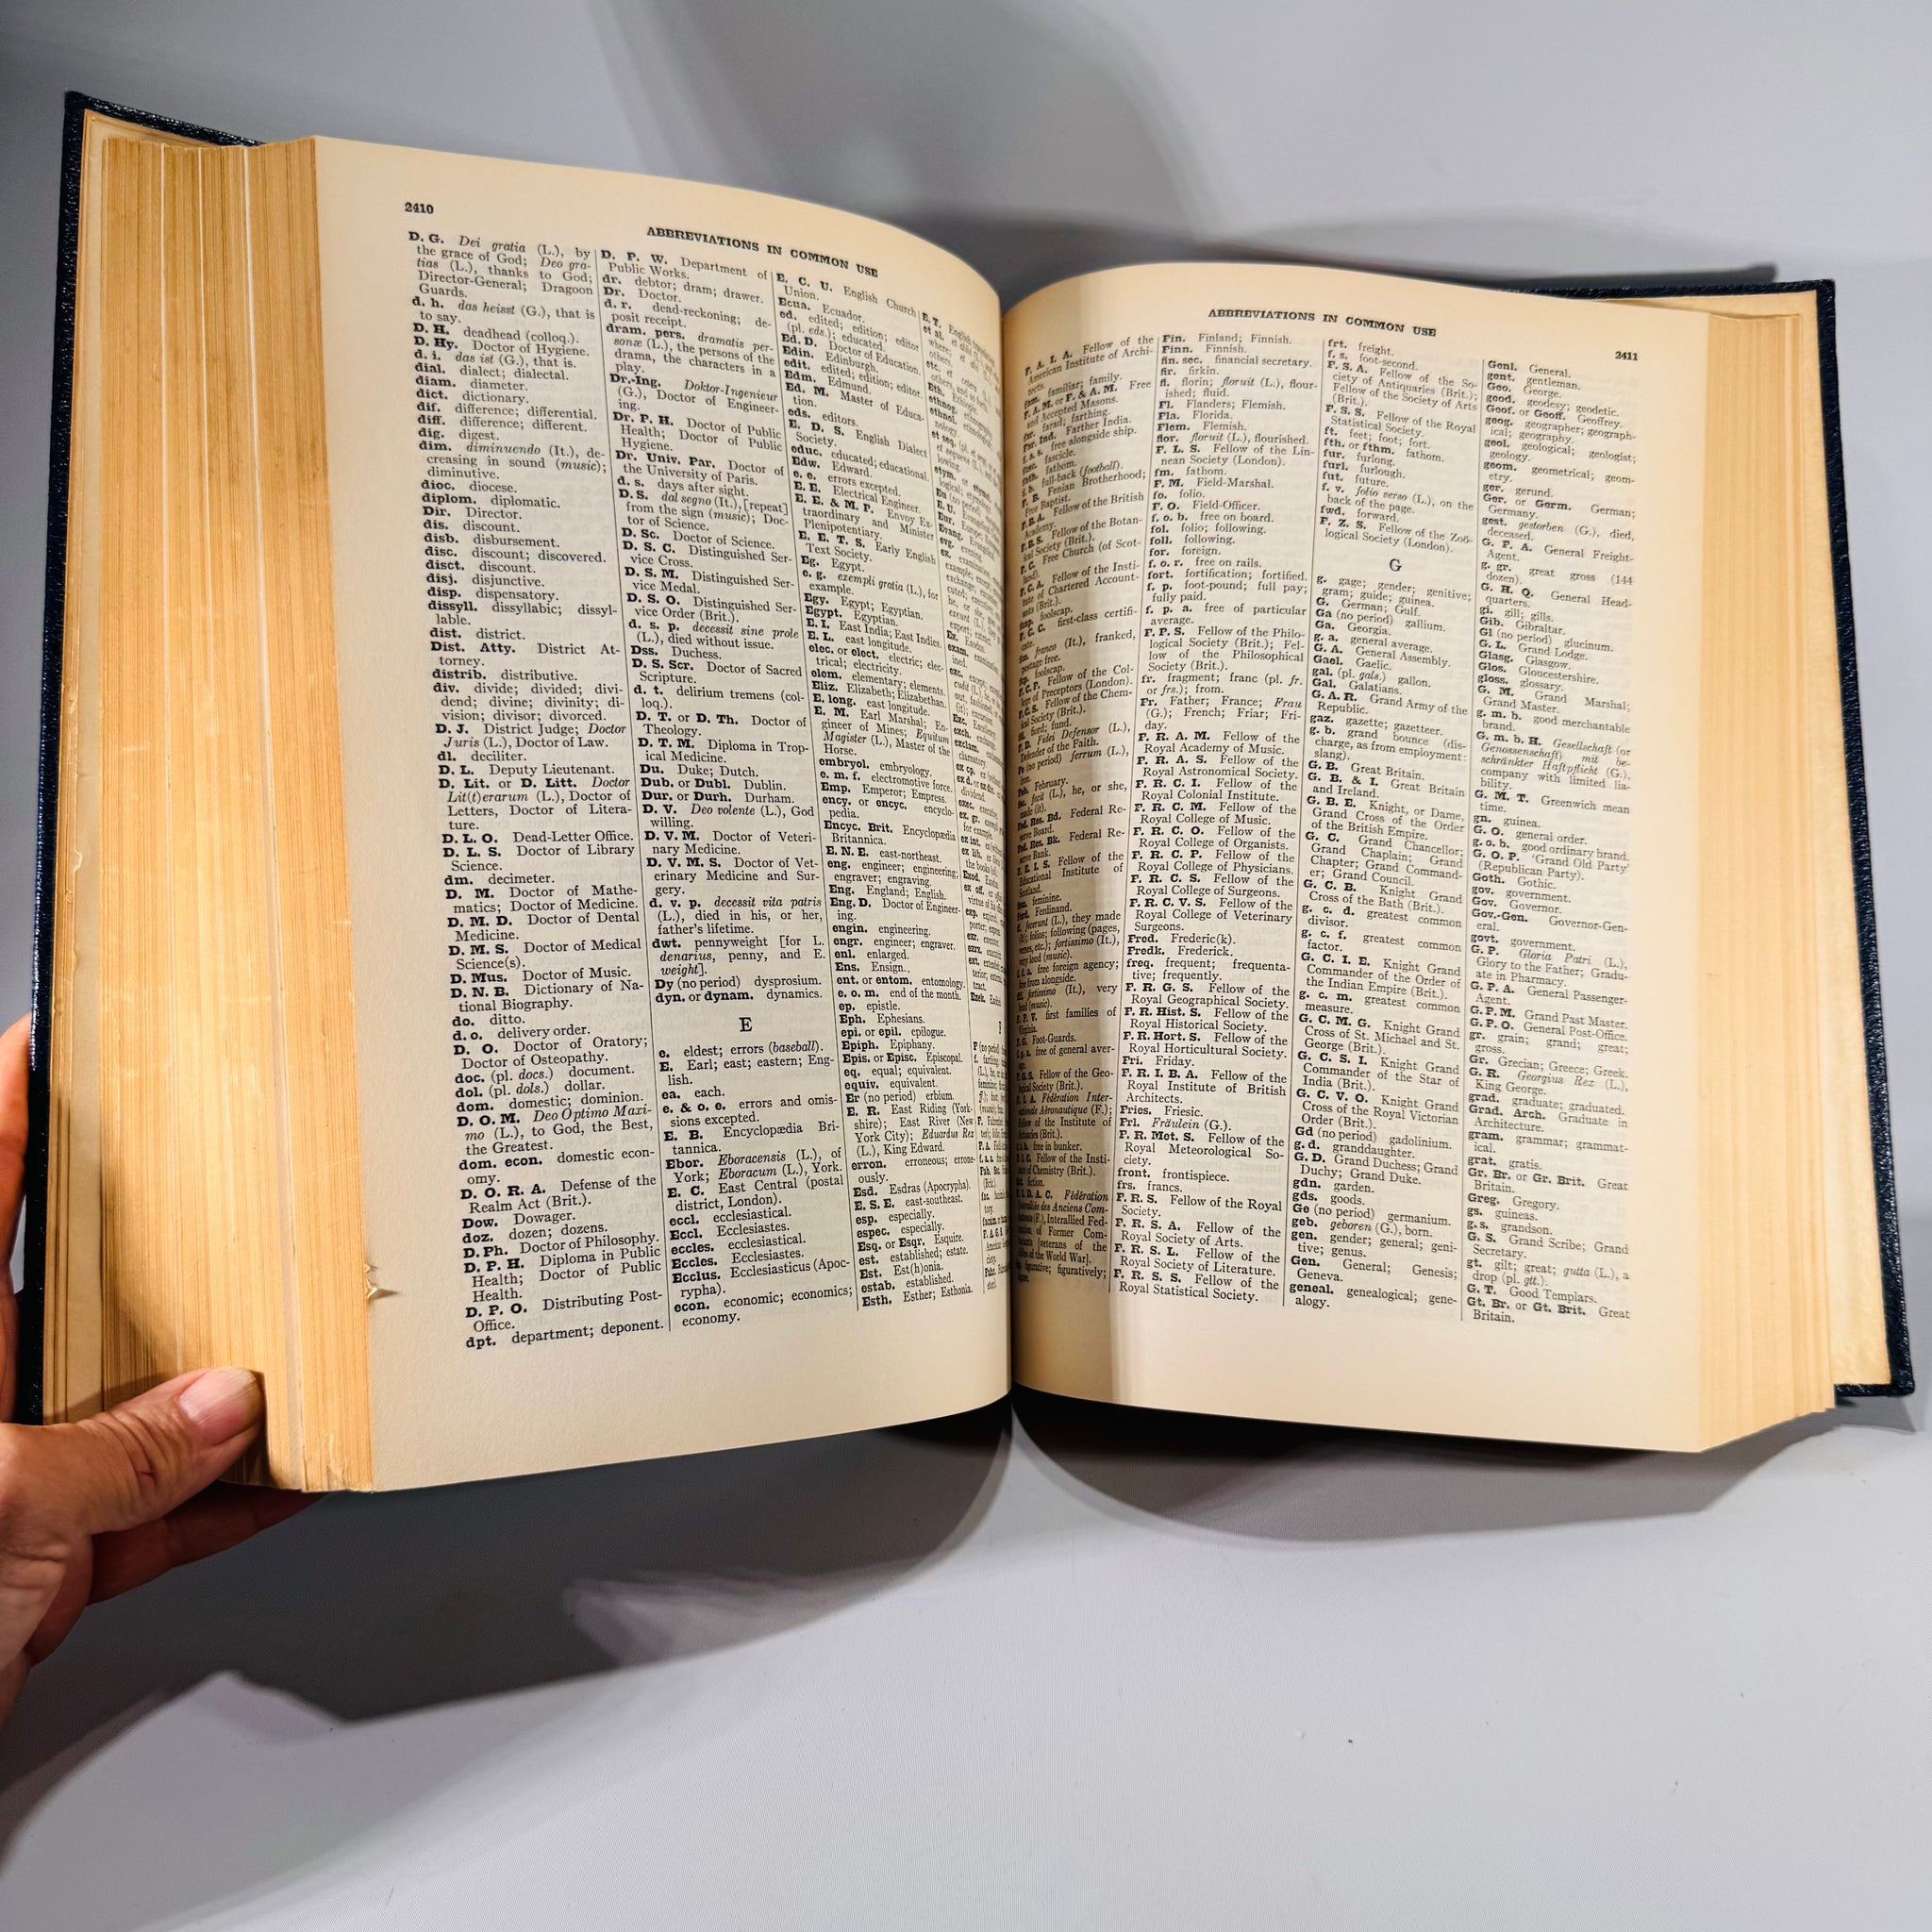 2410
ABBREVIATIONS IN COMMON USE
D. G. Dei gratia (L.), by
the grace of God; Deo gra-
tias (L.), thanks to God;
Director-General; Dragoon
Guards.
d. h. das heisst (G.), that is
to say.
D. H. deadhead (colloq.).
D. Hy. Doctor of Hygiene.
d. i. das ist (G.), that is.
dial. dialect; dialectal.
diam. diameter.
dict. dictionary.
dif. difference; differential.
diff. difference; different.
dig. digest.
dim. diminuendo (It.), de-
creasing in sound (music);
diminutive.
dioc. diocese.
diplom. diplomatic.
Dir. Director.
dis. discount.
disb. disbursement.
disc. discount; discovered.
disct. discount.
disj. disjunctive.
disp. dispensatory.
dissyll. dissyllabic; dissyl-
lable.
dist. district.
Dist. Atty. District At-
torney.
distrib. distributive.
div. divide; divided; divi-
dend; divine; divinity; di-
vision; divisor; divorced.
D. J. District Judge; Doctor
Juris (L.), Doctor of Law.
dl. deciliter.
D. L. Deputy Lieutenant.
D. Lit. or D. Litt. Doctor
Lit(t)erarum (L.), Doctor of
Letters, Doctor of Litera-
ture.
D. L. O. Dead-Letter Office.
D. L. S. Doctor of Library
Science.
dm. decimeter.
D. M. Doctor of Mathe-
matics; Doctor of Medicine.
D. M. D. Doctor of Dental
Medicine.
D. M. S. Doctor of Medical
Science(s).
D. Mus. Doctor of Music.
D. N. B. Dictionary of Na-
tional Biography.
do. ditto.
d. o. delivery order.
D. O. Doctor of Oratory;
Doctor of Osteopathy.
doc. (pl. docs.) document.
dol. (pl. dols.) dollar.
dom. domestic; dominion.
D. O. M. Deo Optimo Maxi-
mo (L.), to God, the Best,
the Greatest.
dom. econ. domestic econ-
omy.
D. O. R. A. Defense of the
Realm Act (Brit.).
Dow. Dowager.
doz. dozen; dozens.
D. Ph. Doctor of Philosophy.
D. P. H. Diploma in Public
Health; Doctor of Public
Health.
D. P. O. Distributing Post-
Office.
dpt. department; deponent.
D. P. W. Department of
Public Works.
dr. debtor; dram; drawer.
Dr. Doctor.
d. r. dead-reckoning; de-
posit receipt.
dram. pers. dramatis per-
sonæ (L.), the persons of the
drama, the characters in a
play.
Dr.-Ing. Doktor-Ingenieur
(G.), Doctor of Engineer-
ing.
Dr. P. H. Doctor of Public
Health; Doctor of Public
Hygiene.
Dr. Univ. Par. Doctor of
the University of Paris.
d. s. days after sight.
D. S. dal segno (It.), [repeat]
from the sign (music); Doc-
tor of Science.
D. Sc. Doctor of Science.
D. S. C. Distinguished Ser-
vice Cross.
D. S. M. Distinguished Ser-
vice Medal.
D. S. O. Distinguished Ser-
vice Order (Brit.).
d. s. p. decessit sine prole
(L.), died without issue.
Dss. Duchess.
D. S. Scr. Doctor of Sacred
Scripture.
d. t. delirium tremens (col-
loq.).
D. T. or D. Th. Doctor of
Theology.
D. T. M. Diploma in Trop-
ical Medicine.
Du. Duke; Dutch.
Dub. or Dubl. Dublin.
Dur. or Durh. Durham.
D. V. Deo volente (L.), God
willing.
D. V. M. Doctor of Veteri-
nary Medicine.
D. V. M. S. Doctor of Vet-
erinary Medicine and Sur-
gery.
d. v. p. decessit vita patris
(L.), died in his, or her,
father's lifetime.
dwt. pennyweight [for L.
denarius, penny, and E.
weight].
Dy (no period) dysprosium.
dyn. or dynam. dynamics.
E
e. eldest; errors (baseball).
E. Earl; east; eastern; Eng-
lish.
ea. each.
e. & o. e. errors and omis-
sions excepted.
E. B. Encyclopædia Bri-
tannica.
Ebor. Eboracensis (L.), of
York; Eboracum (L.), York.
E. C. East Central (postal
district, London).
eccl. ecclesiastical.
Eccl. Ecclesiastes.
eccles. ecclesiastical.
Eccles. Ecclesiastes.
Ecclus. Ecclesiasticus (Apoc-
rypha).
econ. economic; economics;
economy.
E. C. U. English Church
Union.
Ecua. Ecuador.
ed. edited; edition; editor
(pl. eds.); educated.
Ed. D. Doctor of Education.
Edin. Edinburgh.
edit. edited; edition; editor.
Edm. Edmund.
Ed. M. Master of Educa-
tion.
eds. editors.
E. D. S. English Dialect
Society.
educ. educated; educational.
Edw. Edward.
e. e. errors excepted.
E. E. Electrical Engineer.
E. E. & M. P. Envoy Ex-
traordinary and Minister
Plenipotentiary.
E. E. T. S. Early English
Text Society.
Eg. Egypt.
e. g. exempli gratia (L.), for
example.
Egy. Egypt; Egyptian.
Egypt. Egyptian.
E. I. East India; East Indies.
E. L. east longitude.
elec. or elect. electric; elec-
trical; electricity.
elem. elementary; elements.
Eliz. Elizabeth; Elizabethan.
E. long. east longitude.
E. M. Earl Marshal; En-
gineer of Mines; Equitum
Magister (L.), Master of the
Horse.
embryol. embryology.
e. m. f. electromotive force.
Emp. Emperor; Empress.
ency. or encyc. encyclo-
pedia.
Encyc. Brit. Encyclopædia
Britannica.
E. N. E. east-northeast.
eng. engineer; engineering;
engraver; engraving.
Eng. England; English.
Eng. D. Doctor of Engineer-
ing.
engin. engineering.
engr. engineer; engraver.
enl. enlarged.
Ens. Ensign.
ent. or entom. entomology.
e. o. m. end of the month.
ep. epistle.
Eph. Ephesians.
epi. or epil. epilogue.
Epiph. Epiphany.
Epis. or Episc. Episcopal.
eq. equal; equivalent.
equiv. equivalent.
Er (no period) erbium.
E. R. East Riding (York-
shire); East River (New
York City); Eduardus Rex
(L.), King Edward.
erron. erroneous; errone-
ously.
Esd. Esdras (Apocrypha).
E. S. E. east-southeast.
esp. especially.
espec. especially.
Esq. or Esqr. Esquire.
est. established; estate.
Est. Est(h)onia.
estab. established.
Esth. Esther; Esthonia.
E. T. English
et al.
Eth. Ethiopic
ethnog.
ethnol.
et seq.
Ex. Exodus.
exam.
2411
ABBREVIATIONS IN COMMON USE
F. A. I. A. Fellow of the
American Institute of Archi-
tects.
fam. familiar; family.
F. A. M. or F. & A. M. Free
and Accepted Masons.
far. farad; farthing.
Far. Ind. Farther India.
f. a. s. free alongside ship.
fasc. fascicle.
fath. fathom.
f. b. full-back (football).
F. B. Fenian Brotherhood;
Free Baptist.
F. B. A. Fellow of the British
Academy.
F. B. S. Fellow of the Botan-
ical Society (Brit.).
F. C. Free Church (of Scot-
land).
F. C. A. Fellow of the Insti-
tute of Chartered Account-
ants (Brit.).
fcap. foolscap.
F. C. C. first-class certifi-
cate.
fco. franco (It.), franked,
postage free.
fcp. foolscap.
F. C. P. Fellow of the Col-
lege of Preceptors (London).
F. C. S. Fellow of the Chem-
ical Society (Brit.).
fd. fiord; fund.
F. D. Fidei Defensor (L.),
Defender of the Faith.
Fe (no period) ferrum (L.),
iron.
Feb. February.
fec. fecit (L.), he, or she,
made (it).
Fed. Res. Bd. Federal Re-
serve Board.
Fed. Res. Bk. Federal Re-
serve Bank.
F. E. I. S. Fellow of the
Educational Institute of
Scotland.
fem. feminine.
Ferd. Ferdinand.
ff. fecerunt (L.), they made
(it); folios; following (pages,
verses, etc.); fortissimo (It.),
very loud (music).
f. f. a. free foreign agency;
free from alongside.
fff. fortissimo (It.), very
loud (music).
F. F. V. first families of
Virginia.
F. G. Foot-Guards.
f. g. a. free of general aver-
age.
F. G. S. Fellow of the Geo-
logical Society (Brit.).
F. I. A. Fédération Inter-
nationale Aéronautique (F.);
Fellow of the Institute of
Actuaries (Brit.).
f. i. b. free in bunker.
F. I. C. Fellow of the Insti-
tute of Chemistry (Brit.).
fic. fiction.
F. I. D. A. C. Fédération
Interalliée des Anciens Com-
battants (F.), Interallied Fed-
eration of Former Com-
batants [veterans of the
allies of the World War].
fig. figurative; figuratively;
figure.
Fin. Finland; Finnish.
Finn. Finnish.
fin. sec. financial secretary.
fir. firkin.
fl. florin; floruit (L.), flour-
ished; fluid.
Fl. Flanders; Flemish.
Fla. Florida.
Flem. Flemish.
flor. floruit (L.), flourished.
F. L. S. Fellow of the Lin-
nean Society (London).
fm. fathom.
F. M. Field-Marshal.
fo. folio.
F. O. Field-Officer.
f. o. b. free on board.
fol. folio; following.
foll. following.
for. foreign.
f. o. r. free on rails.
fort. fortification; fortified.
f. p. foot-pound; full pay;
fully paid.
f. p. a. free of particular
average.
F. P. S. Fellow of the Philo-
logical Society (Brit.); Fel-
low of the Philosophical
Society (Brit.).
fr. fragment; franc (pl. fr.
or frs.); from.
Fr. Father; France; Frau
(G.); French; Friar; Fri-
day.
F. R. A. M. Fellow of the
Royal Academy of Music.
F. R. A. S. Fellow of the
Royal Astronomical Society.
F. R. C. I. Fellow of the
Royal Colonial Institute.
F. R. C. M. Fellow of the
Royal College of Music.
F. R. C. O. Fellow of the
Royal College of Organists.
F. R. C. P. Fellow of the
Royal College of Physicians.
F. R. C. S. Fellow of the
Royal College of Surgeons.
F. R. C. V. S. Fellow of the
Royal College of Veterinary
Surgeons.
Fred. Frederic(k).
Fredk. Frederick.
freq. frequent; frequenta-
tive; frequently.
F. R. G. S. Fellow of the
Royal Geographical Society.
F. R. Hist. S. Fellow of the
Royal Historical Society.
F. R. Hort. S. Fellow of the
Royal Horticultural Society.
Fri. Friday.
F. R. I. B. A. Fellow of the
Royal Institute of British
Architects.
Fries. Friesic.
Frl. Fräulein (G.).
F. R. Met. S. Fellow of the
Royal Meteorological So-
ciety.
front. frontispiece.
frs. francs.
F. R. S. Fellow of the Royal
Society.
F. R. S. A. Fellow of the
Royal Society of Arts.
F. R. S. L. Fellow of the
Royal Society of Literature.
F. R. S. S. Fellow of the
Royal Statistical Society.
frt. freight.
f. s. foot-second.
F. S. A. Fellow of the So-
ciety of Antiquaries (Brit.);
Fellow of the Society of Arts
(Brit.).
F. S. S. Fellow of the Royal
Statistical Society.
ft. feet; foot; fort.
fth. or fthm. fathom.
fur. furlong.
furl. furlough.
fut. future.
f. v. folio verso (L.), on the
back of the page.
fwd. forward.
F. Z. S. Fellow of the Zoö-
logical Society (London).
G
g. gage; gender; genitive;
gram; guide; guinea.
G. German; Gulf.
Ga (no period) gallium.
Ga. Georgia.
g. a. general average.
G. A. General Assembly.
Gael. Gaelic.
gal. (pl. gals.) gallon.
Gal. Galatians.
G. A. R. Grand Army of the
Republic.
gaz. gazette; gazetteer.
g. b. grand bounce (dis-
charge, as from employment:
slang).
G. B. Great Britain.
G. B. & I. Great Britain
and Ireland.
G. B. E. Knight, or Dame,
Grand Cross of the Order
of the British Empire.
G. C. Grand Chancellor;
Grand Chaplain; Grand
Chapter; Grand Command-
er; Grand Council.
G. C. B. Knight Grand
Cross of the Bath (Brit.).
g. c. d. greatest common
divisor.
g. c. f. greatest common
factor.
G. C. I. E. Knight Grand
Commander of the Order of
the Indian Empire (Brit.).
g. c. m. greatest common
measure.
G. C. M. G. Knight Grand
Cross of St. Michael and St.
George (Brit.).
G. C. S. I. Knight Grand
Commander of the Star of
India (Brit.).
G. C. V. O. Knight Grand
Cross of the Royal Victorian
Order (Brit.).
Gd (no period) gadolinium.
g. d. granddaughter.
G. D. Grand Duchess; Grand
Duchy; Grand Duke.
gdn. garden.
gds. goods.
Ge (no period) germanium.
geb. geboren (G.), born.
gen. gender; general; geni-
tive; genus.
Gen. General; Genesis;
Geneva.
geneal. genealogical; gene-
alogy.
Genl. General.
gent. gentleman.
Geo. George.
geod. geodesy; geodetic.
Geof. or Geoff. Geoffrey.
geog. geographer; geograph-
ical; geography.
geol. geological; geologist;
geology.
geom. geometrical; geom-
etry.
ger. gerund.
Ger. or Germ. German;
Germany.
gest. gestorben (G.), died,
deceased.
G. F. A. General Freight-
Agent.
g. gr. great gross (144
dozen).
G. H. Q. General Head-
quarters.
gi. gill; gills.
Gib. Gibraltar.
Gl (no period) glucinum.
G. L. Grand Lodge.
Glasg. Glasgow.
Glos. Gloucestershire.
gloss. glossary.
G. M. Grand Marshal;
Grand Master.
g. m. b. good merchantable
brand.
G. m. b. H. Gesellschaft (or
Genossenschaft) mit be-
schränkter Haftpflicht (G.),
company with limited lia-
bility.
G. M. T. Greenwich mean
time.
gn. guinea.
G. O. general order.
g. o. b. good ordinary brand.
G. O. P. 'Grand Old Party'
(Republican Party).
Goth. Gothic.
gov. government.
Gov. Governor.
Gov.-Gen. Governor-Gen-
eral.
govt. government.
G. P. Gloria Patri (L.),
Glory to the Father; Gradu-
ate in Pharmacy.
G. P. A. General Passenger-
Agent.
G. P. M. Grand Past Master.
G. P. O. General Post-Office.
gr. grain; grand; great;
gross.
Gr. Grecian; Greece; Greek.
G. R. Georgius Rex (L.),
King George.
grad. graduate; graduated.
Grad. Arch. Graduate in
Architecture.
gram. grammar; grammat-
ical.
grat. gratis.
Gr. Br. or Gr. Brit. Great
Britain.
Greg. Gregory.
gs. guineas.
g. s. grandson.
G. S. Grand Scribe; Grand
Secretary.
gt. gilt; great; gutta (L.), a
drop (pl. gtt.).
G. T. Good Templars.
Gt. Br. or Gt. Brit. Great
Britain.